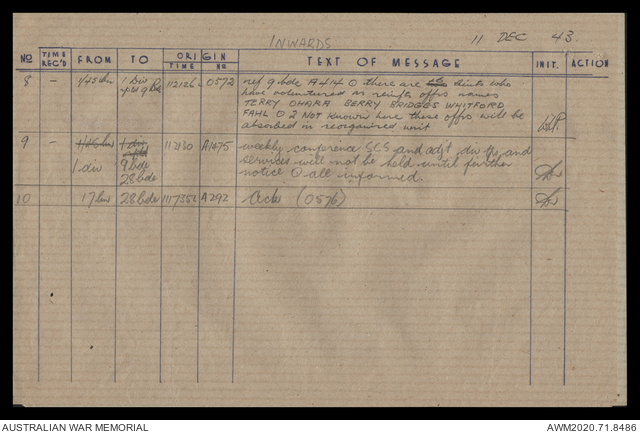 INWARDS 11 DEC 43.
NO TIME REC'D FROM TO ORIGIN TIME NO TEXT OF MESSAGE INIT. ACTION
8 - 1/45 bn 1 Div 0572 ref 9 bde A414 O there are who
rptd 9 bde have volunteered as reinfts offrs names
TERRY OHARA BERRY BRIDGES WHITFORD
FAHL O 2 NOT known here these offrs will be
absorbed in reorganised unit
9 - 1 div 9 bde 28 bde 112130 A1475 weekly conference SCS and adjt div tps and
services will not be held until further
notice O all informed.
10 17 bn 28 bde A292 Ack (0576)
AUSTRALIAN WAR MEMORIAL AWM2020.71.8486